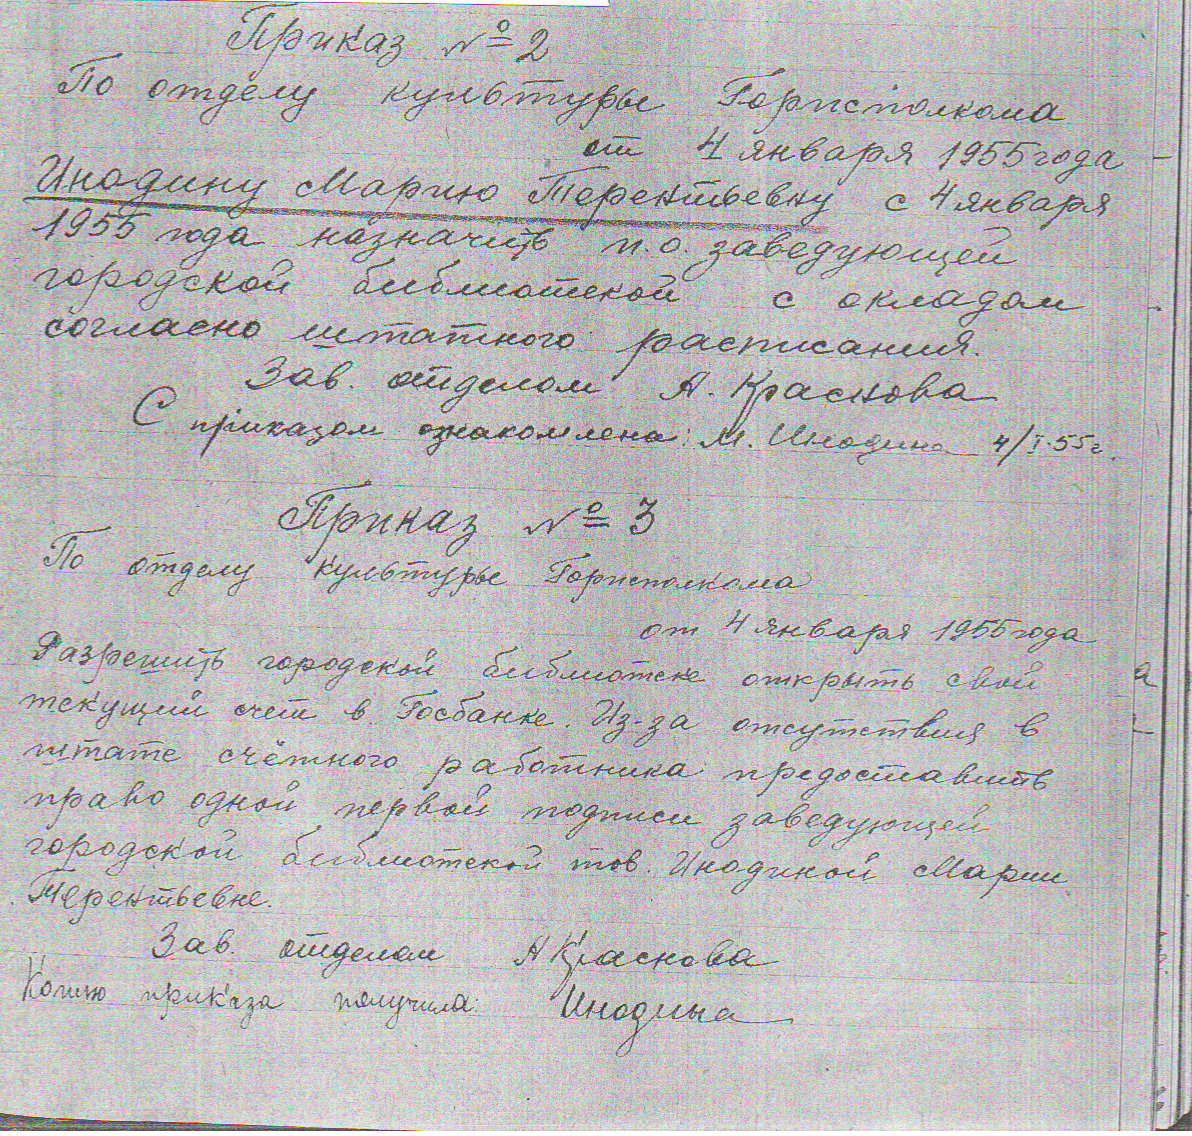 Приказ № 2
По отделу культуры Горисполкома
от 4 января 1955 года
Инодину Марию Терентьевну с 4 января
1955 года назначить и.о. заведующей
городской библиотекой с окладом
согласно штатного расписания.
Зав. отделом А. Краснова
С приказом ознакомлена: М. Инодина 4/I-55г.
Приказ № 3
По отделу культуры Горисполкома
от 4 января 1955 года
Разрешить городской библиотеке открыть свой
текущий счет в Госбанке. Из-за отсутствия в
штате счётного работника предоставить
право одной первой подписи заведующей
городской библиотекой тов. Инодиной Марии
Терентьевне.
Зав. отделом А Краснова
Копию приказа получила: Инодина